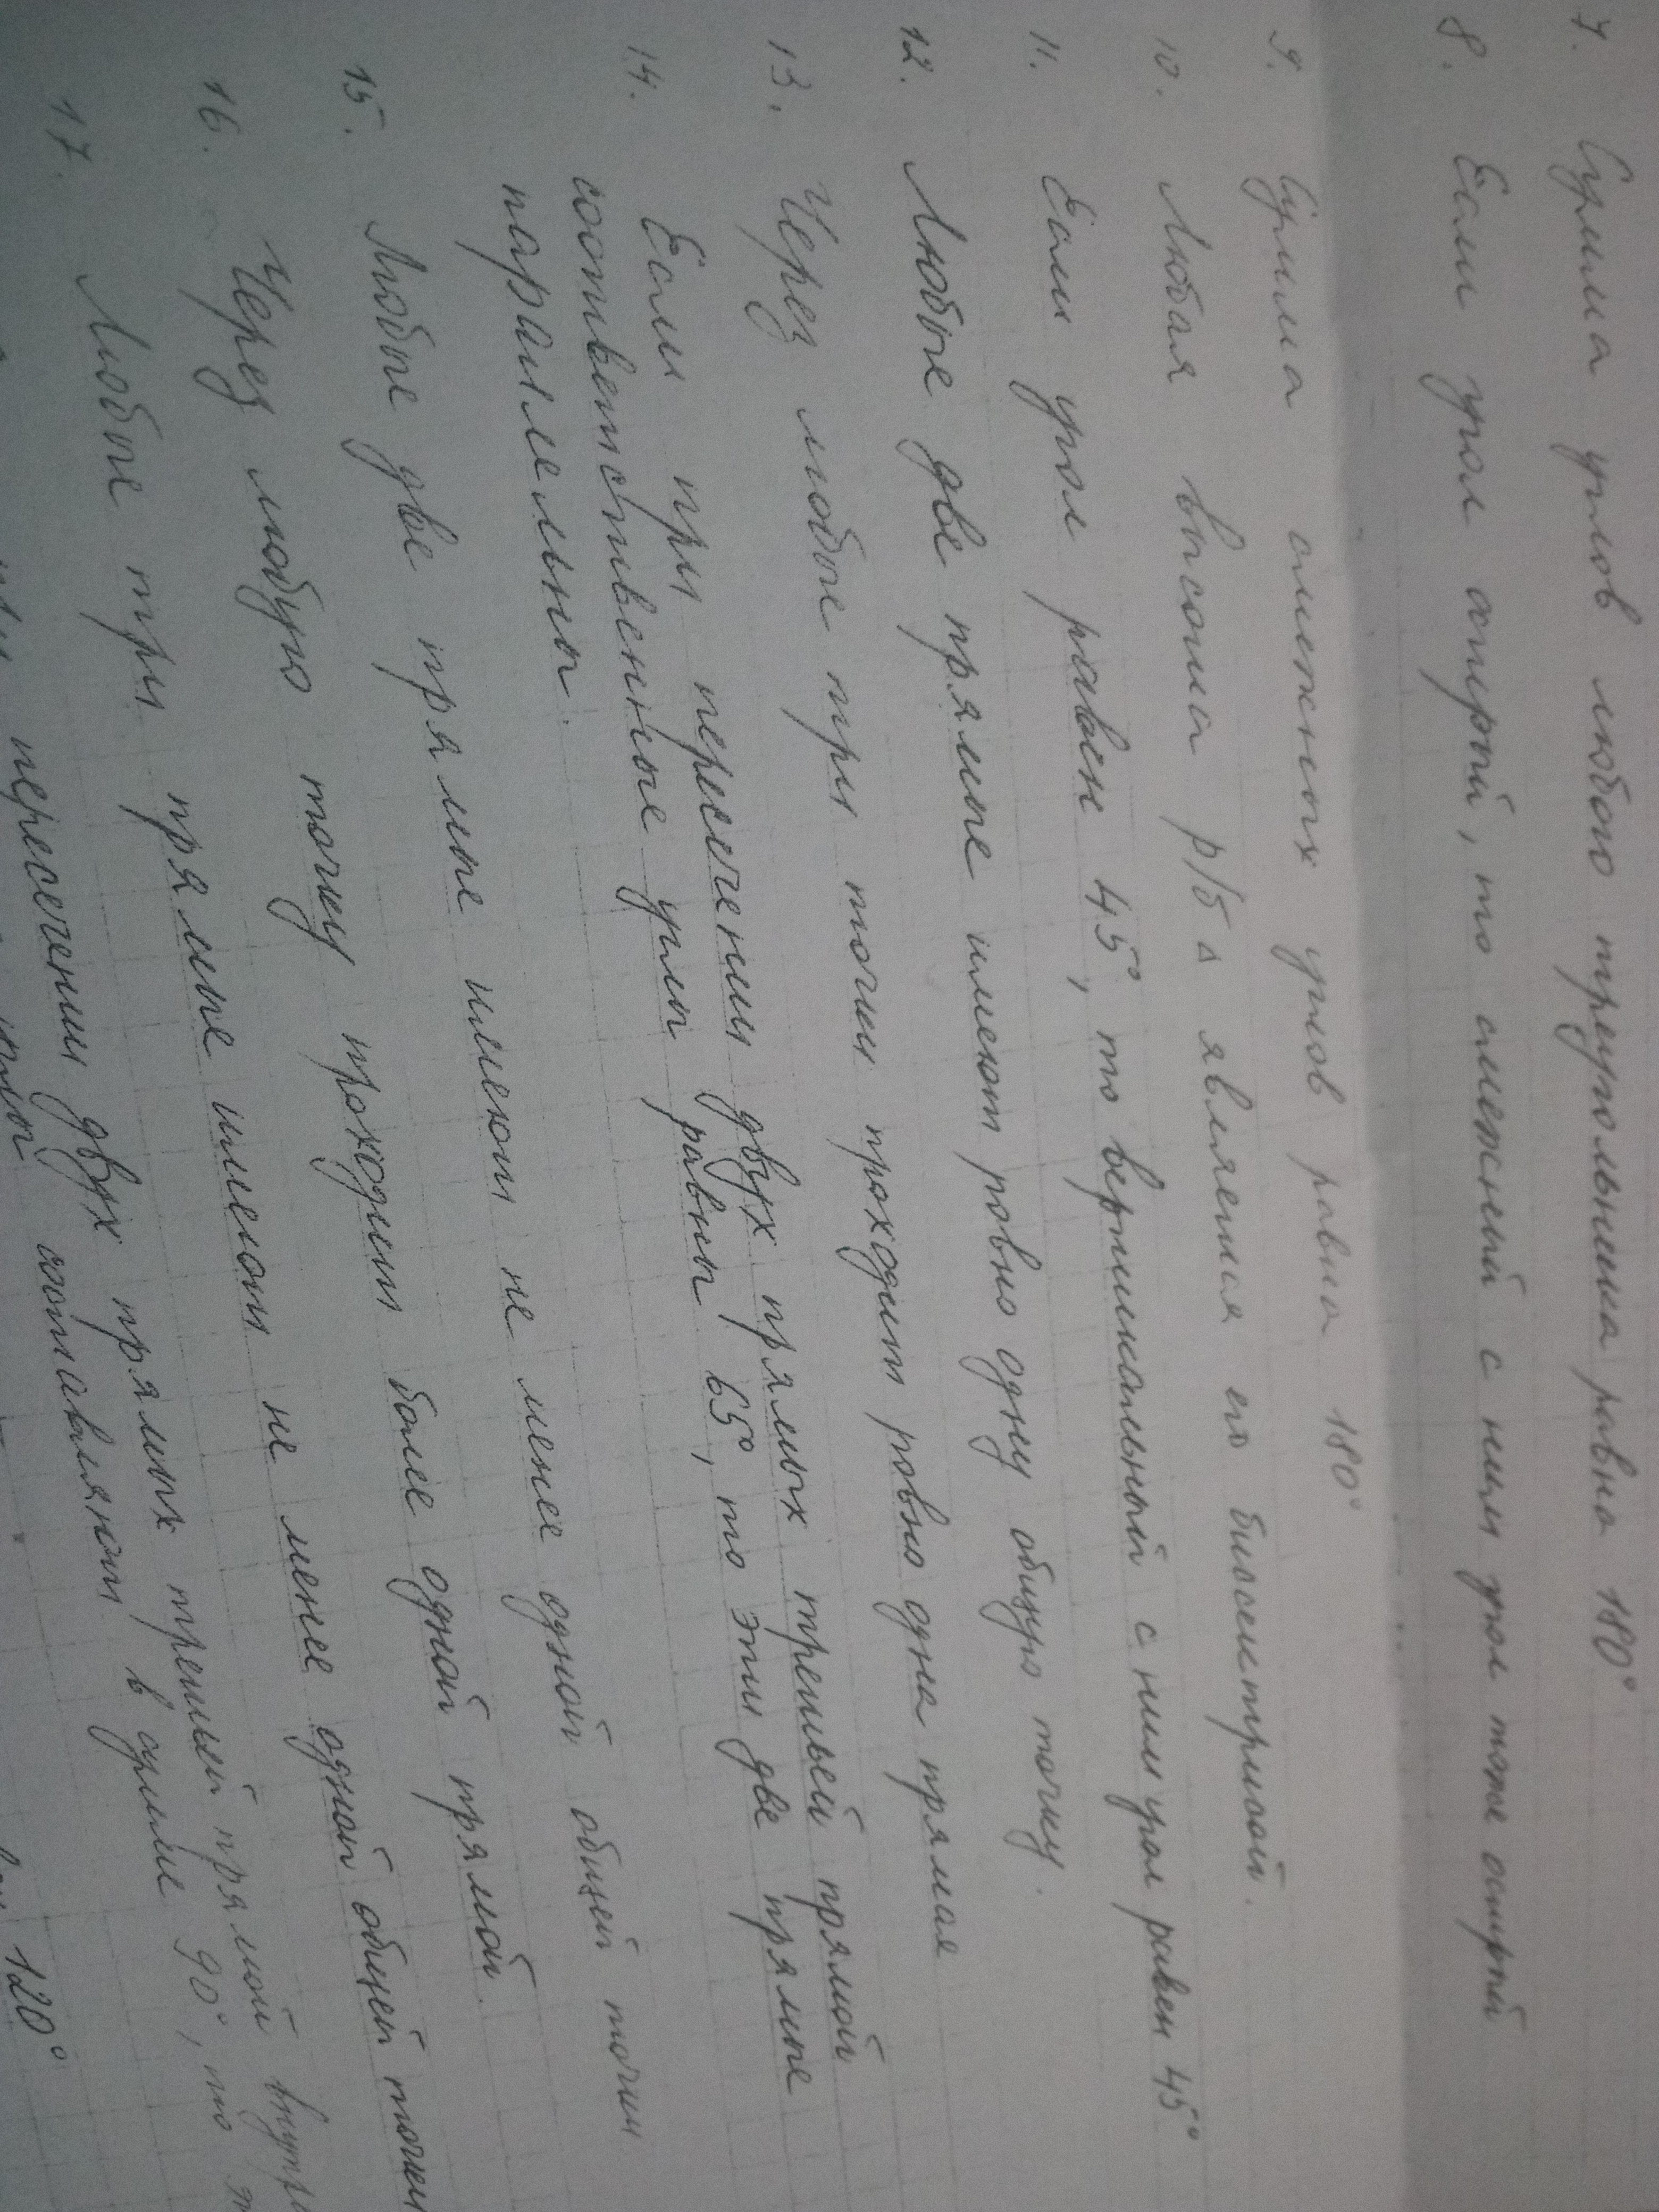 7. Сумма углов любого треугольника равна 180°
8. Если угол острый, то смежный с ним угол тоже острый
9. Сумма смежных углов равна 180°
10. Любая высота р/б △ является его биссектрисой.
11. Если угол равен 45°, то вертикальный с ним угол равен 45°
12. Любые две прямые имеют ровно одну общую точку.
13. Через любые три точки проходит ровно одна прямая
14. Если при пересечении двух прямых третьей прямой
соответственные углы равны 65°, то эти две прямые
параллельны.
15. Любые две прямые имеют не менее одной общей точки
16. Через любую точку проходит более одной прямой.
17. Любые три прямые имеют не менее одной общей точки
при пересечении двух прямых третьей прямой внутр
углы составляют в сумме 90°, то
120°